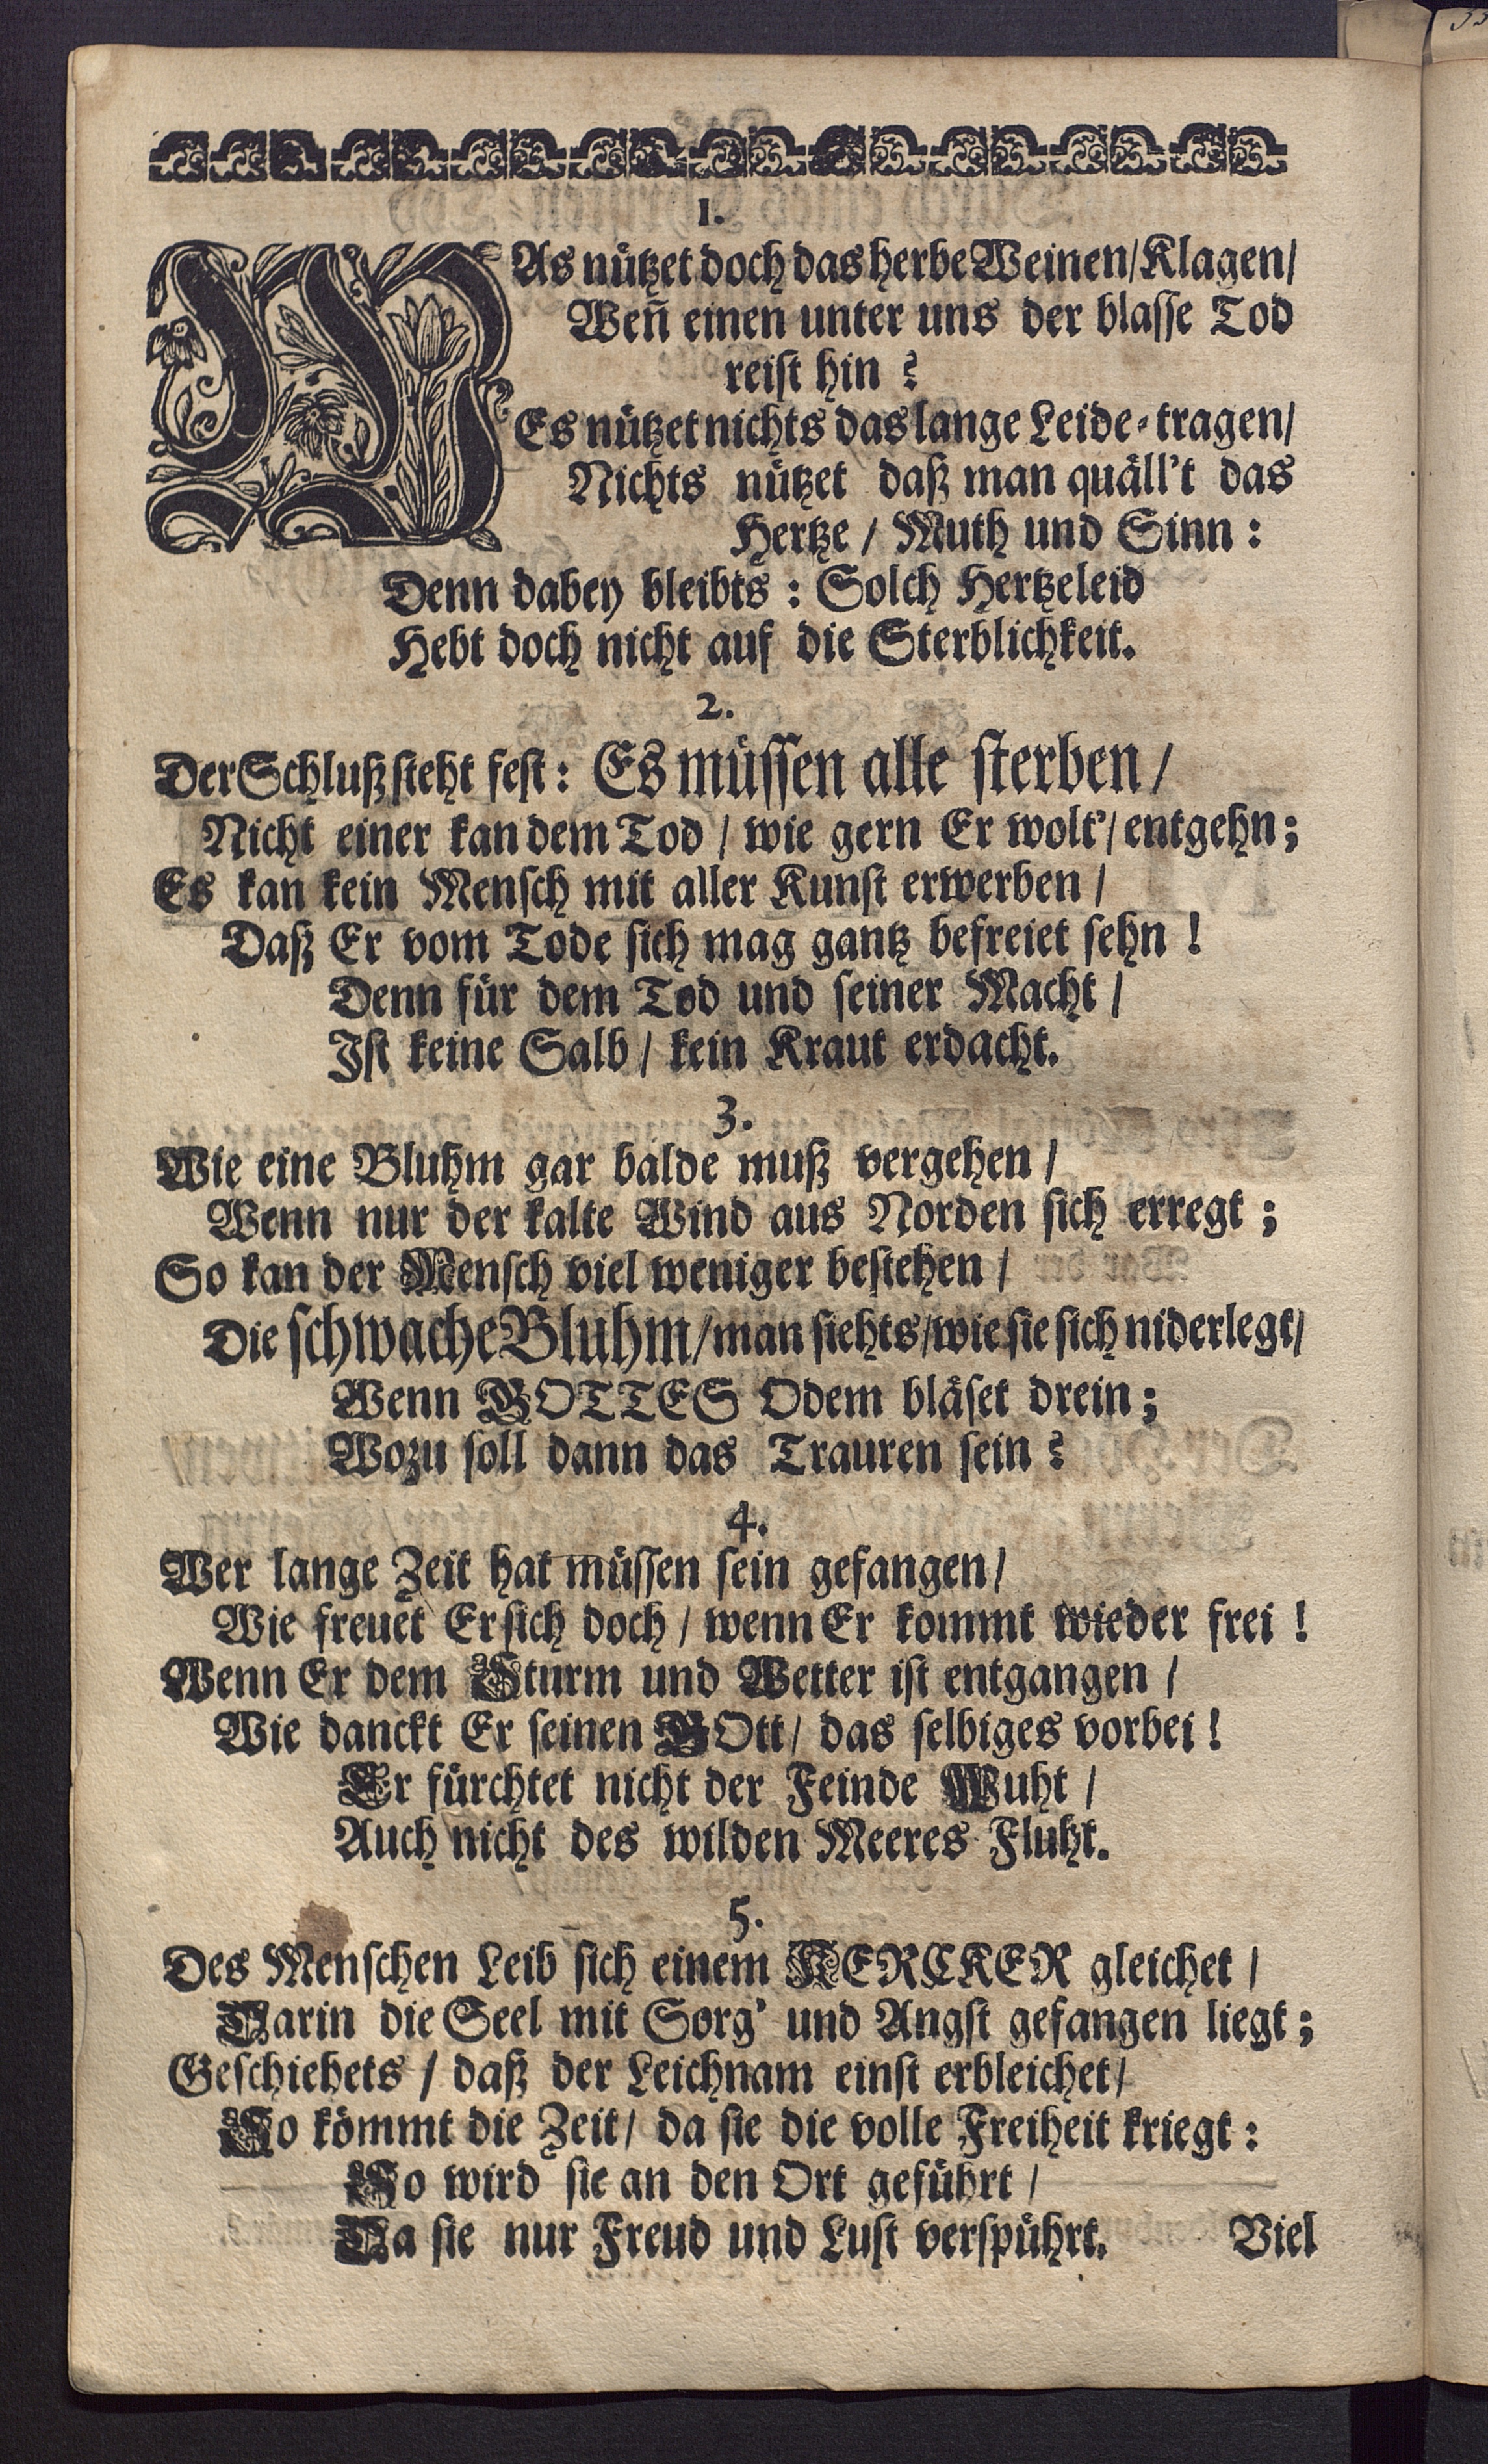 1.
WAs nützet doch das herbe Weinen/Klagen/
Weñ einen unter uns der blasse Tod
reist hin?
Es nützet nichts das lange Leide-tragen/
Nichts nützet daß man quäll't das
Hertze / Muth und Sinn:
Denn dabey bleibts: Solch Hertzeleid
Hebt doch nicht auf die Sterblichkeit.
2.
Der Schluß steht fest: Es müssen alle sterben /
Nicht einer kan dem Tod / wie gern Er wolt' / entgehn;
Es kan kein Mensch mit aller Kunst erwerben /
Daß Er vom Tode sich mag gantz befreiet sehn!
Denn für dem Tod und seiner Macht /
Ist keine Salb / kein Kraut erdacht.
3.
Wie eine Bluhm gar balde muß vergehen /
Wenn nur der kalte Wind aus Norden sich erregt;
So kan der Mensch viel weniger bestehen /
Die schwache Bluhm / man siehts / wie sie sich niderlegt /
Wenn GOTTES Odem bläset drein;
Wozu soll dann das Trauren sein?
4.
Wer lange Zeit hat müssen sein gefangen /
Wie freuet Er sich doch / wenn Er kommt wieder frei!
Wenn Er dem Sturm und Wetter ist entgangen /
Wie danckt Er seinen GOtt / das selbiges vorbei!
Er fürchtet nicht der Feinde Wuht /
Auch nicht des wilden Meeres Fluht.
5.
Des Menschen Leib sich einem KERCKER gleichet /
Darin die Seel mit Sorg' und Angst gefangen liegt;
Geschiehets / daß der Leichnam einst erbleichet /
So kömmt die Zeit / da sie die volle Freiheit kriegt:
So wird sie an den Ort geführt /
Da sie nur Freud und Lust verspührt.
Viel